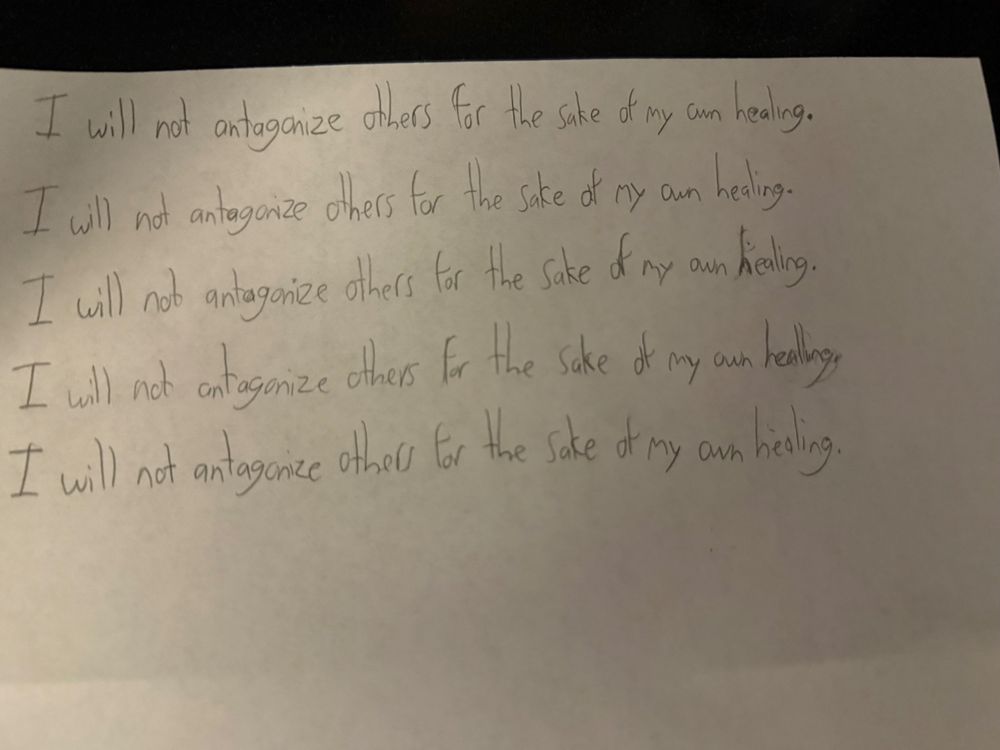 I will not antagonize others for the sake of my own healing.
I will not antagonize others for the sake of my own healing.
I will not antagonize others for the sake of my own healing.
I will not antagonize others for the sake of my own healling.
I will not antagonize others for the sake of my own healing.